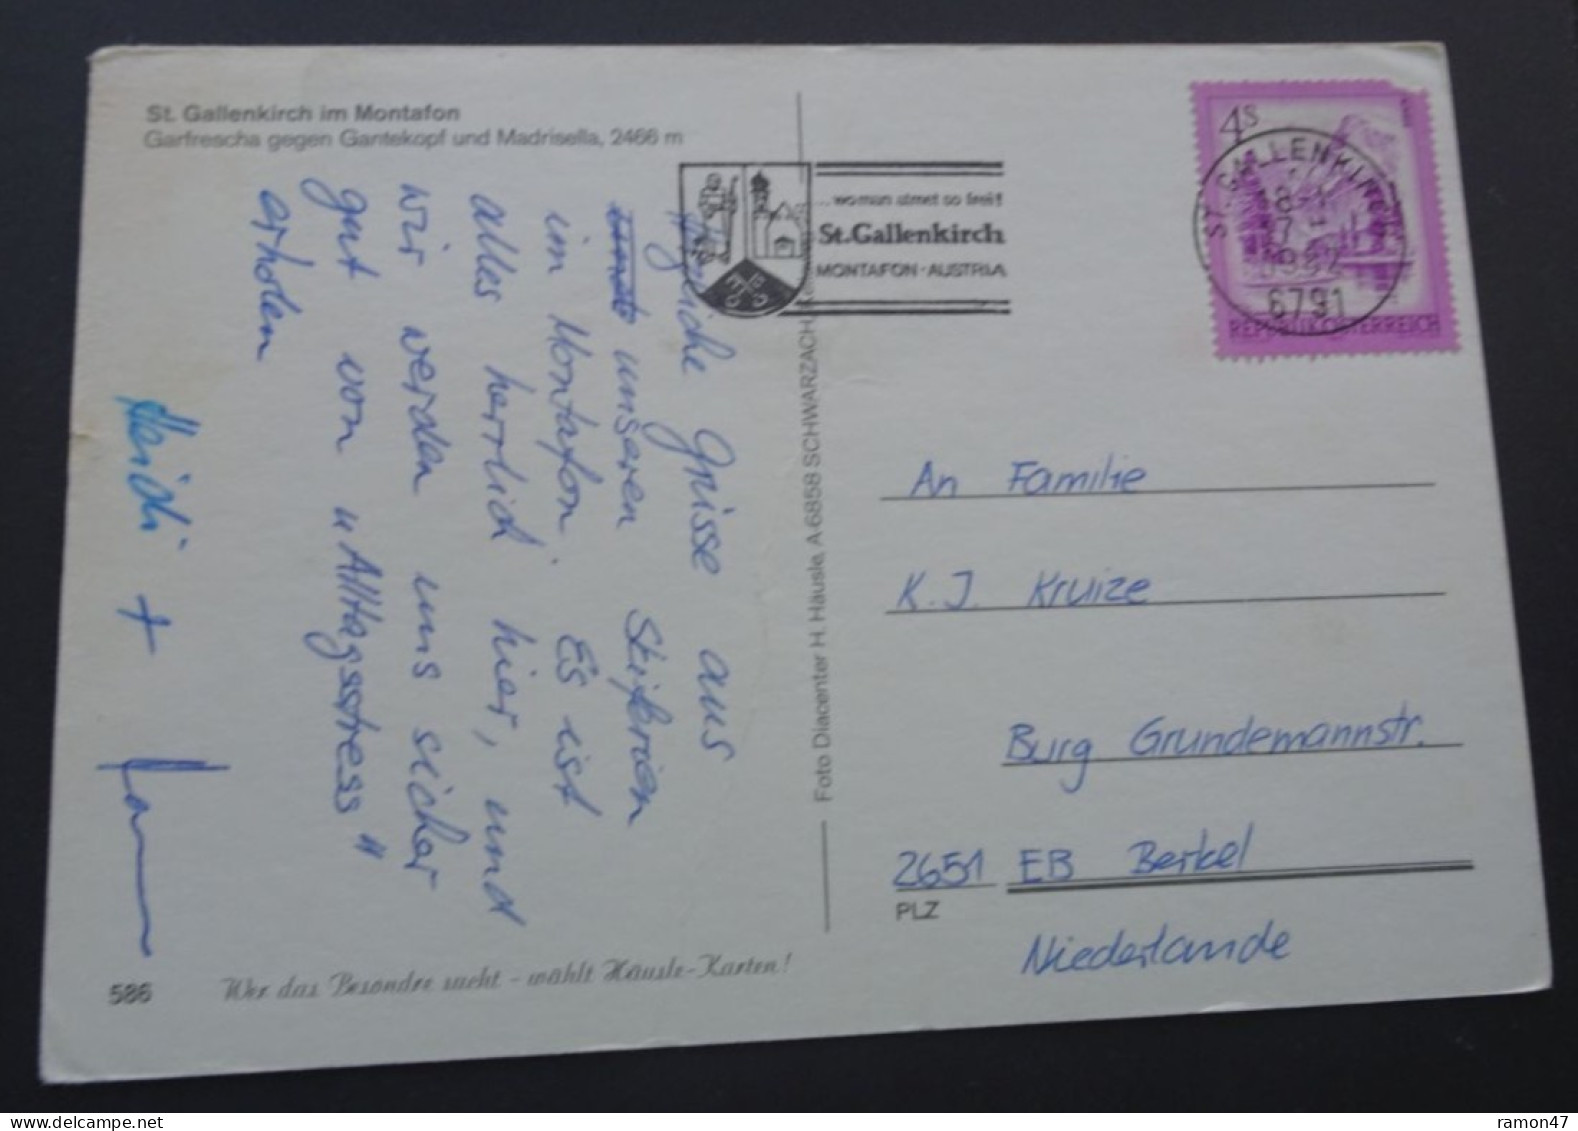 St. Gallenkirch im Montafon
Garfrescha gegen Gantekopf und Madrisella, 2466 m
... wo man atmet so frei!
St.Gallenkirch
MONTAFON · AUSTRIA
4S
ST. GALLENKIRCH
6791
REPUBLIK ÖSTERREICH
Grüsse aus
unseren Skiferien
im Montafon. Es ist
alles herrlich hier, und
wir werden uns sicher
gut von "Alltagsstress"
erholen
Heidi +
Foto Diacenter H. Häusle, A-6858 SCHWARZACH
An Familie
K. J. Kruize
Burg Grundemannstr.
2651 EB Berkel
PLZ
Niederlande
586
Wer das Besondre sucht - wählt Häusle-Karten!
ramon47